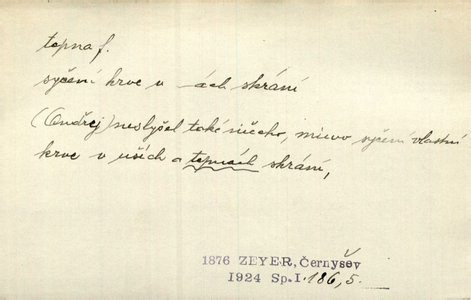 tepna f.
syčení krve v -ách skrání
(Ondřej) neslyšel také ničeho, mimo syčení vlastní
krve v uších a tepnách skrání,
1876 ZEYER, Černyšev
1924 Sp.I. 186,5.